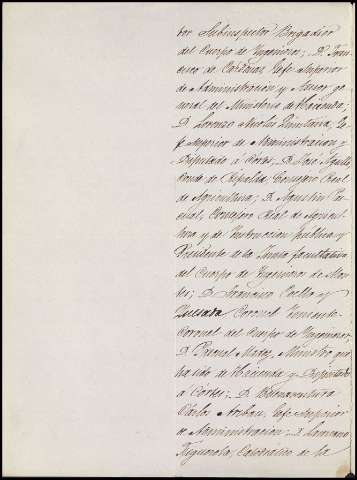 tor Subinspector Brigadier
del Cuerpo de Yngenieros; D. Fran-
cisco de Cardenas Gefe Superior
de Administracion y Asesor ge-
neral del Ministerio de Hacienda;
D. Lorenzo Nicolas Quintana, Ge-
fe Superior de Administracion y
Diputado á Cortes; D. José Agulló
Conde de Ripalda, Consejero Real
de Agricultura; D. Agustin Pas-
cual, Consejero Real de Agricul-
tura y de Ynstruccion publica y
Presidente de la Junta facultativa
del Cuerpo de Yngenieros de Mon-
tes; D. Francisco Coello y
Quesada Coronel Teniente
Coronel del Cuerpo de Yngenieros;
D. Manuel Ministro que
ha sido de Hacienda y Diputado
á Cortes; D. Buenaventura
Carlos Aribau, Gefe Superior
de Administracion; D. Laureano
Figuerola, Catedratico de la